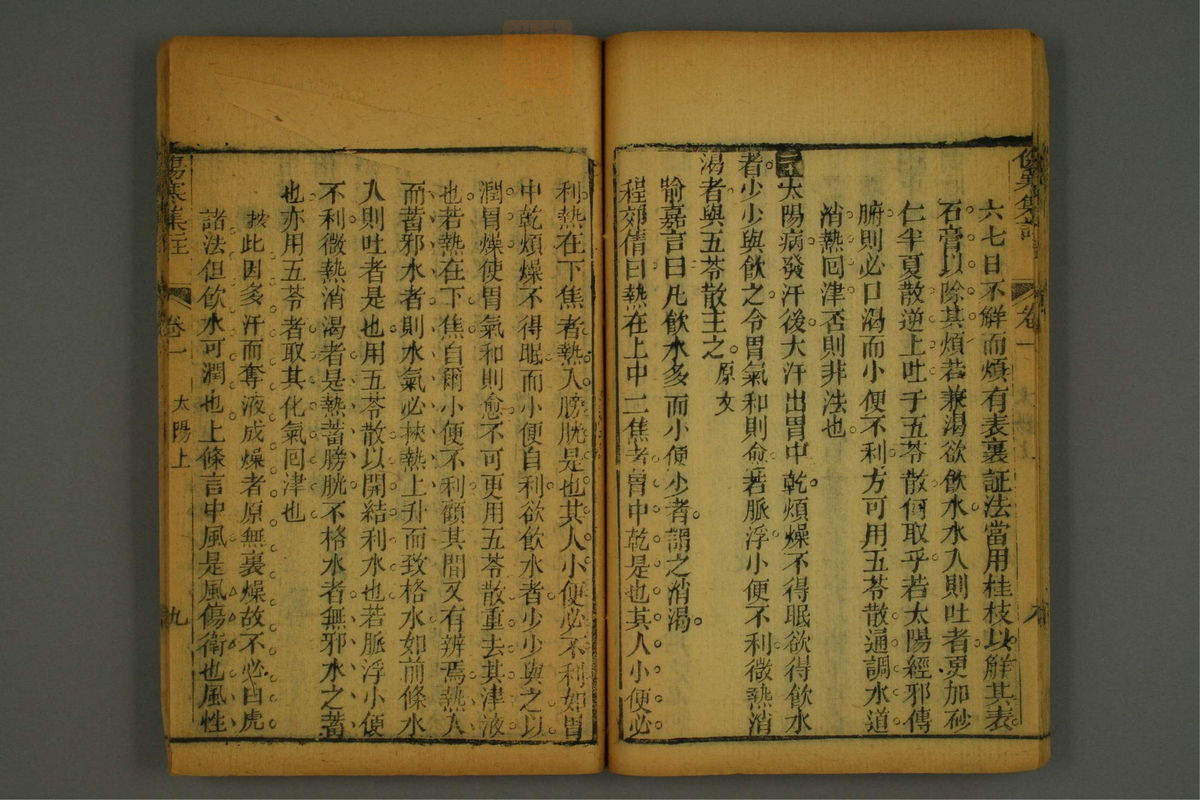 六七日不觧而煩有表裏証法當用桂枝以觧其表
石膏以除其煩若兼渴欲飲水水入則吐者更加砂
仁半夏散逆上吐于五苓散何取乎若太陽經邪傳
腑則必口渴而小便不利方可用五苓散通調水道
消熱回津否則非法也
太陽病發汗後大汗出胃中乾煩燥不得眠欲得飲水
者少少與飲之令胃氣和則愈若脈浮小便不利微熱消
渴者與五苓散主之 原文
喻嘉言曰凡飲水多而小便少者謂之消渴
程郊倩曰熱在上中二焦者胃中乾是也其人小便必
傷寒集註 卷一 太陽上 九
利熱在下焦者熱入膀胱是也其人小便必不利如胃
中乾煩燥不得眠而小便自利欲飲水者少少與之以
潤胃燥使胃氣和則愈不可更用五苓散重去其津液
也若熱在下焦自爾小便不利顧其間又有辨焉熱入
而蓄邪水者則水氣必挾熱上升而致格水如前條水
入則吐者是也用五苓散以開結利水也若脈浮小便
不利微熱消渴者是熱蓄膀胱不格水者無邪水之蓄
也亦用五苓者取其化氣回津也
按此因多汗而奪液成燥者原無裏燥故不必白虎
諸法但飲水可潤也上條言中風是風傷衛也風性